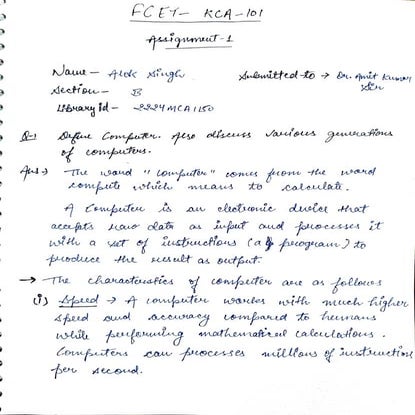 FCET- KCA-101
Assignment-1
Name - Alok Singh Submitted to → Dr. Amit Kumar
Section - B Sir
Library id - 2224MCA1150
Q-1 Define Computer. Also discuss various generations
of computers.
Ans → The word "computer" comes from the word
compute which means to calculate.
A Computer is an electronic device that
accepts raw data as input and processes it
with a set of instructions (a program) to
produce the result as output.
→ The characteristics of computer are as follows
(i) Speed → A computer works with much higher
speed and accuracy compared to humans
while performing mathematical calculations.
Computers can processes millions of instruction
per second.